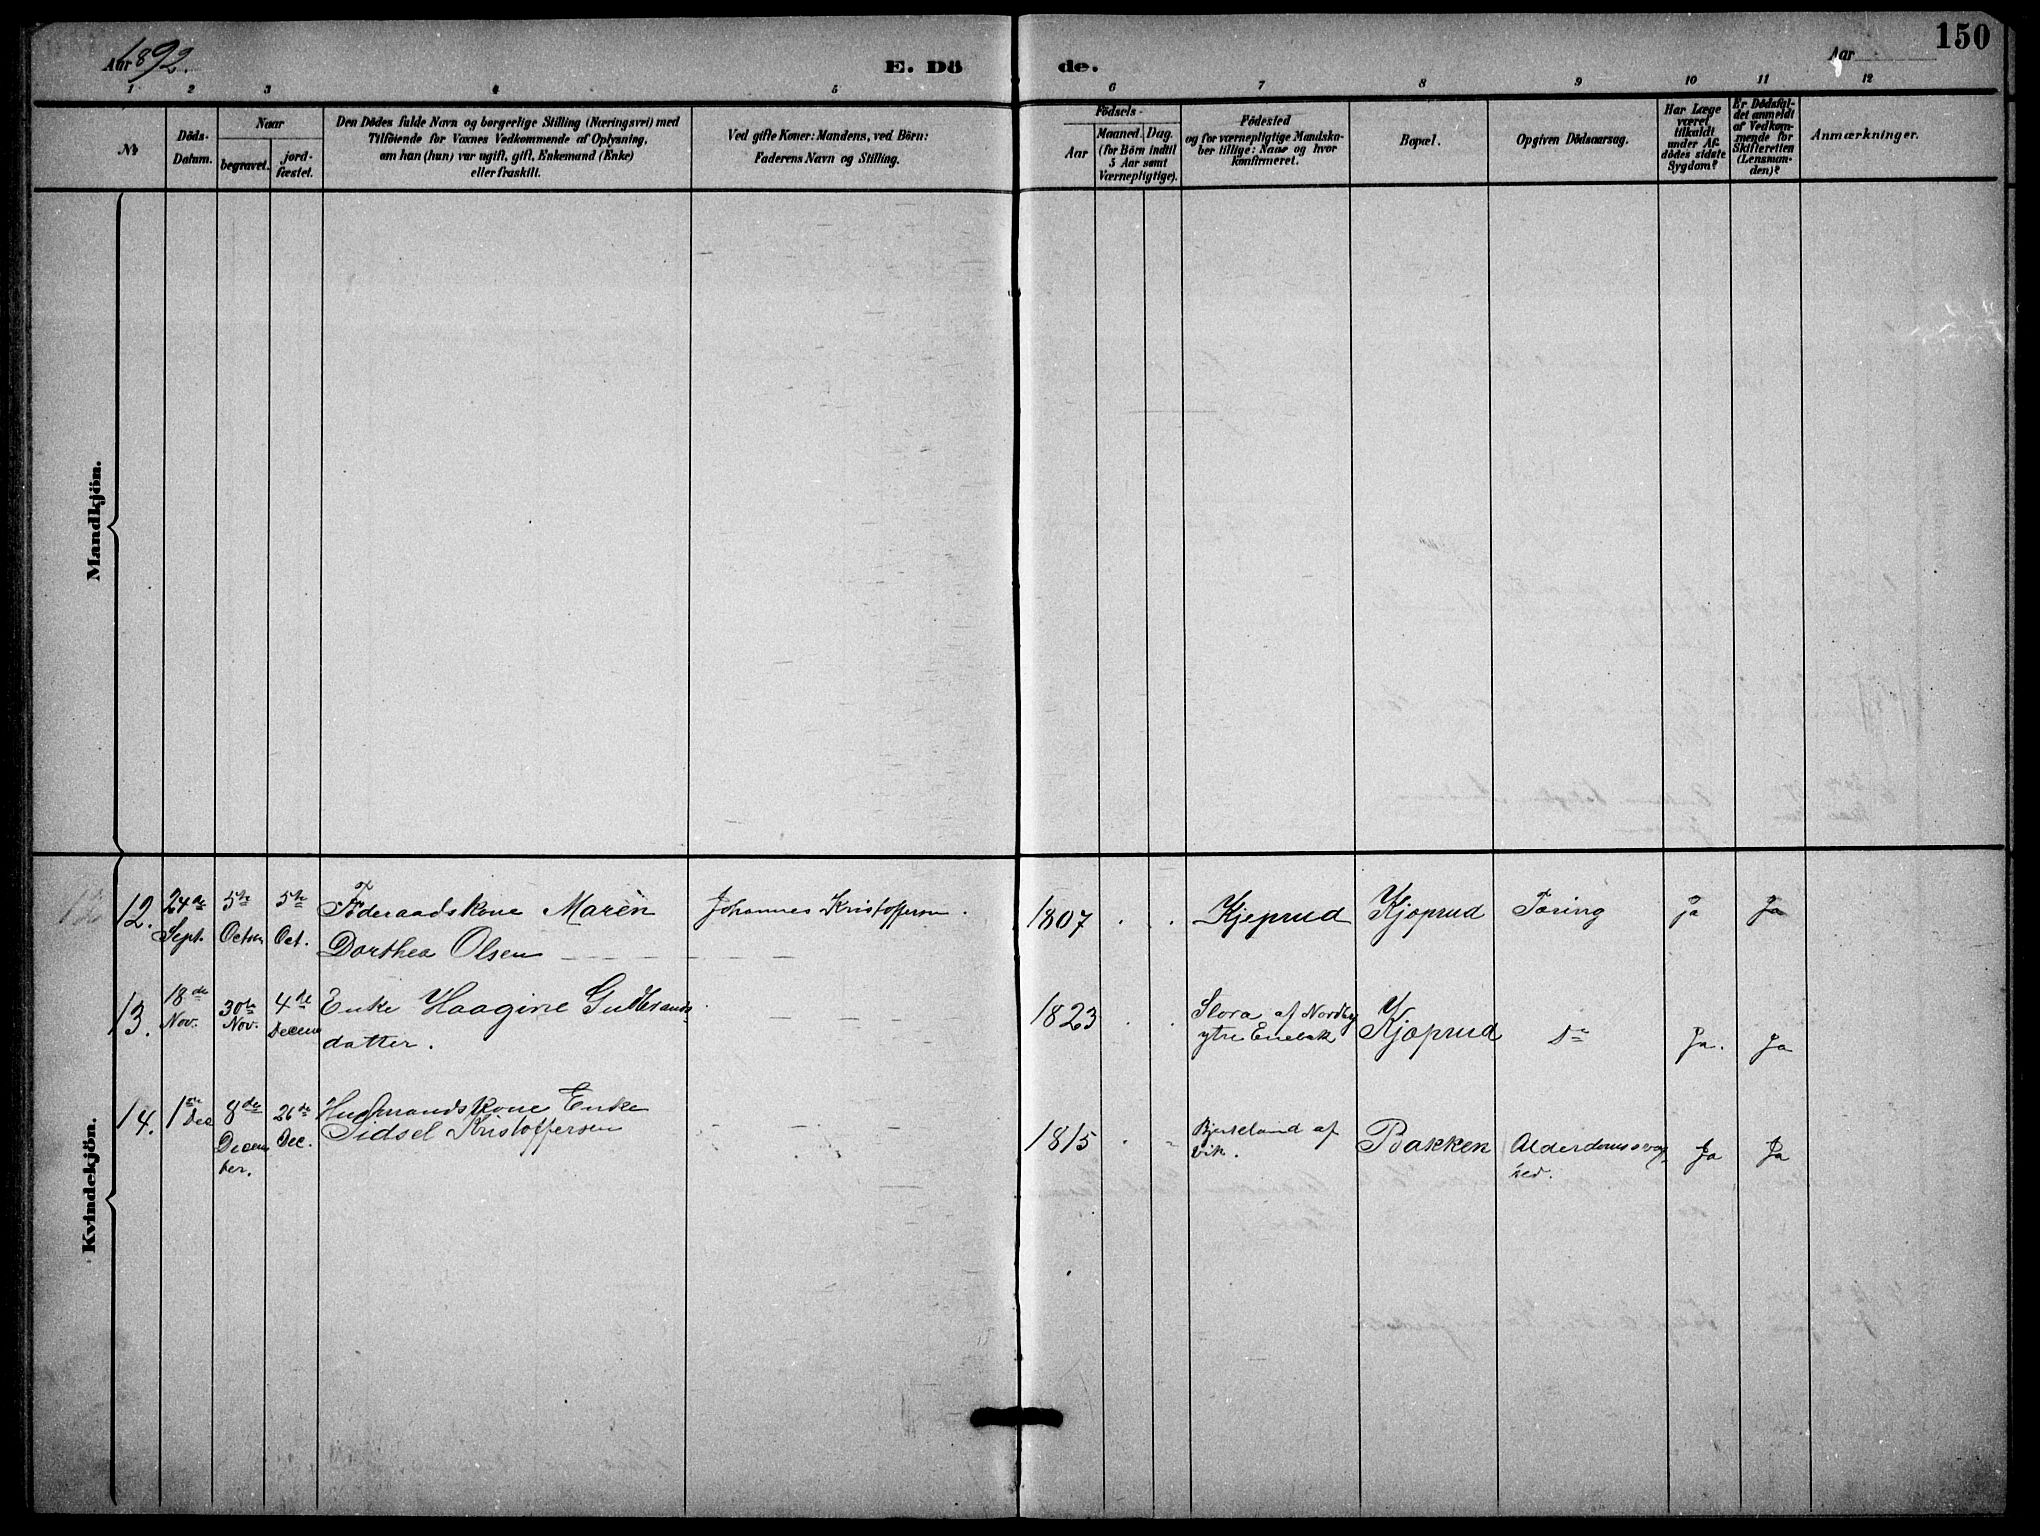 Aar 1892.
E. Dö
de.
Aar
150
1 2 3 4 5 6 7 8 9 10 11 12
№
Döds-
Datum.
Naar
begravet.
jord-
fæstet.
Den Dödes fulde Navn og borgerlige Stilling (Næringsvei) med
Tilföiende for Voxnes Vedkommende af Oplysning,
om han (hun) var ugift, gift, Enkemand (Enke)
eller fraskilt.
Ved gifte Koner: Mandens, ved Börn:
Faderens Navn og Stilling.
Födsels-
Aar
Maaned. Dag.
(for Börn indtil
5 Aar samt
Værnepligtige).
Födested
og for værnepligtige Mandska-
ber tillige: Naar og hvor
konfirmeret.
Bopæl.
Opgiven Dödsaarsag.
Har Læge
været
tilkaldt
under Af-
dödes sidste
Sygdom?
Er Dödsfal-
det anmeldt
af Vedkom-
mende for
Skifteretten
(Lensman-
den)?
Anmærkninger.
Mandkjön.
Kvindekjön.
12.
24de
Sept.
5te
5te
Oct.
Föderaadskone Maren
Dorthea Olsen
Johannes Kristoffersen.
1807
Kjeprud
Kjöprud
Tæring
Ja
Ja
13.
18de
Nov.
30te
Nov.
4de
Decem
Enke Haagine Gulbrands-
datter.
1823
Slora af Nordby
ytre Enebak
Kjöprud
Do
Ja.
Ja
14.
1ste
Dec
8de
Decem
ber.
26de
Dec.
Husmandskone Enke
Sidsel Kristoffersen
1815
Bjerkelund af
Vik.
Bakken
Alderdomssvag-
hed.
Ja
Ja